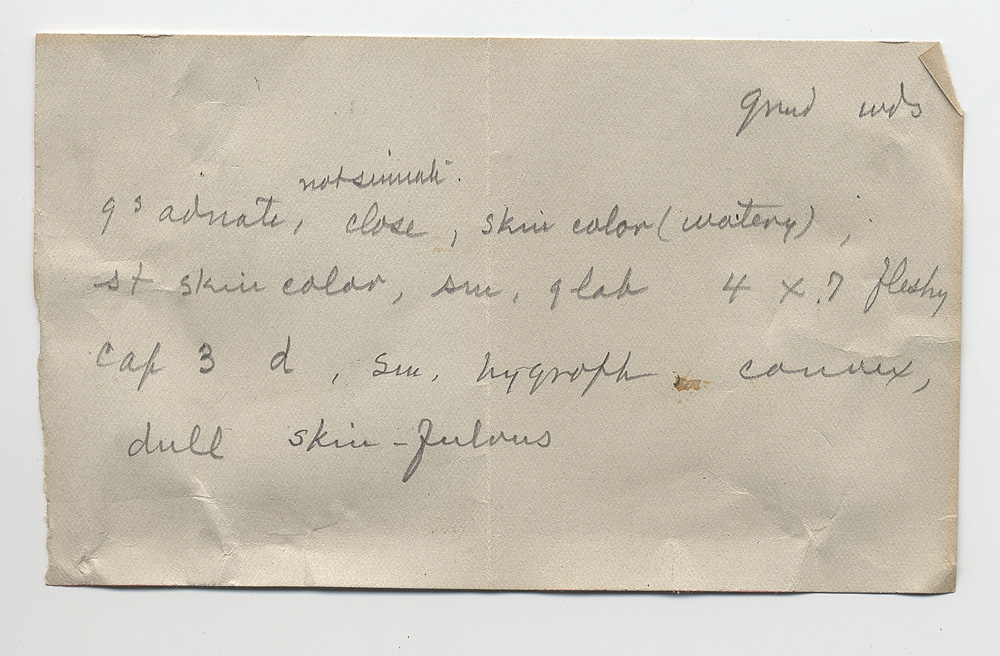 grnd wds
not sinuate.
gs adnate, close, skin color (watery),
st skin color, sm, glab 4 x .7 fleshy
cap 3 d, sm, hygroph convex,
dull skin-fulvous